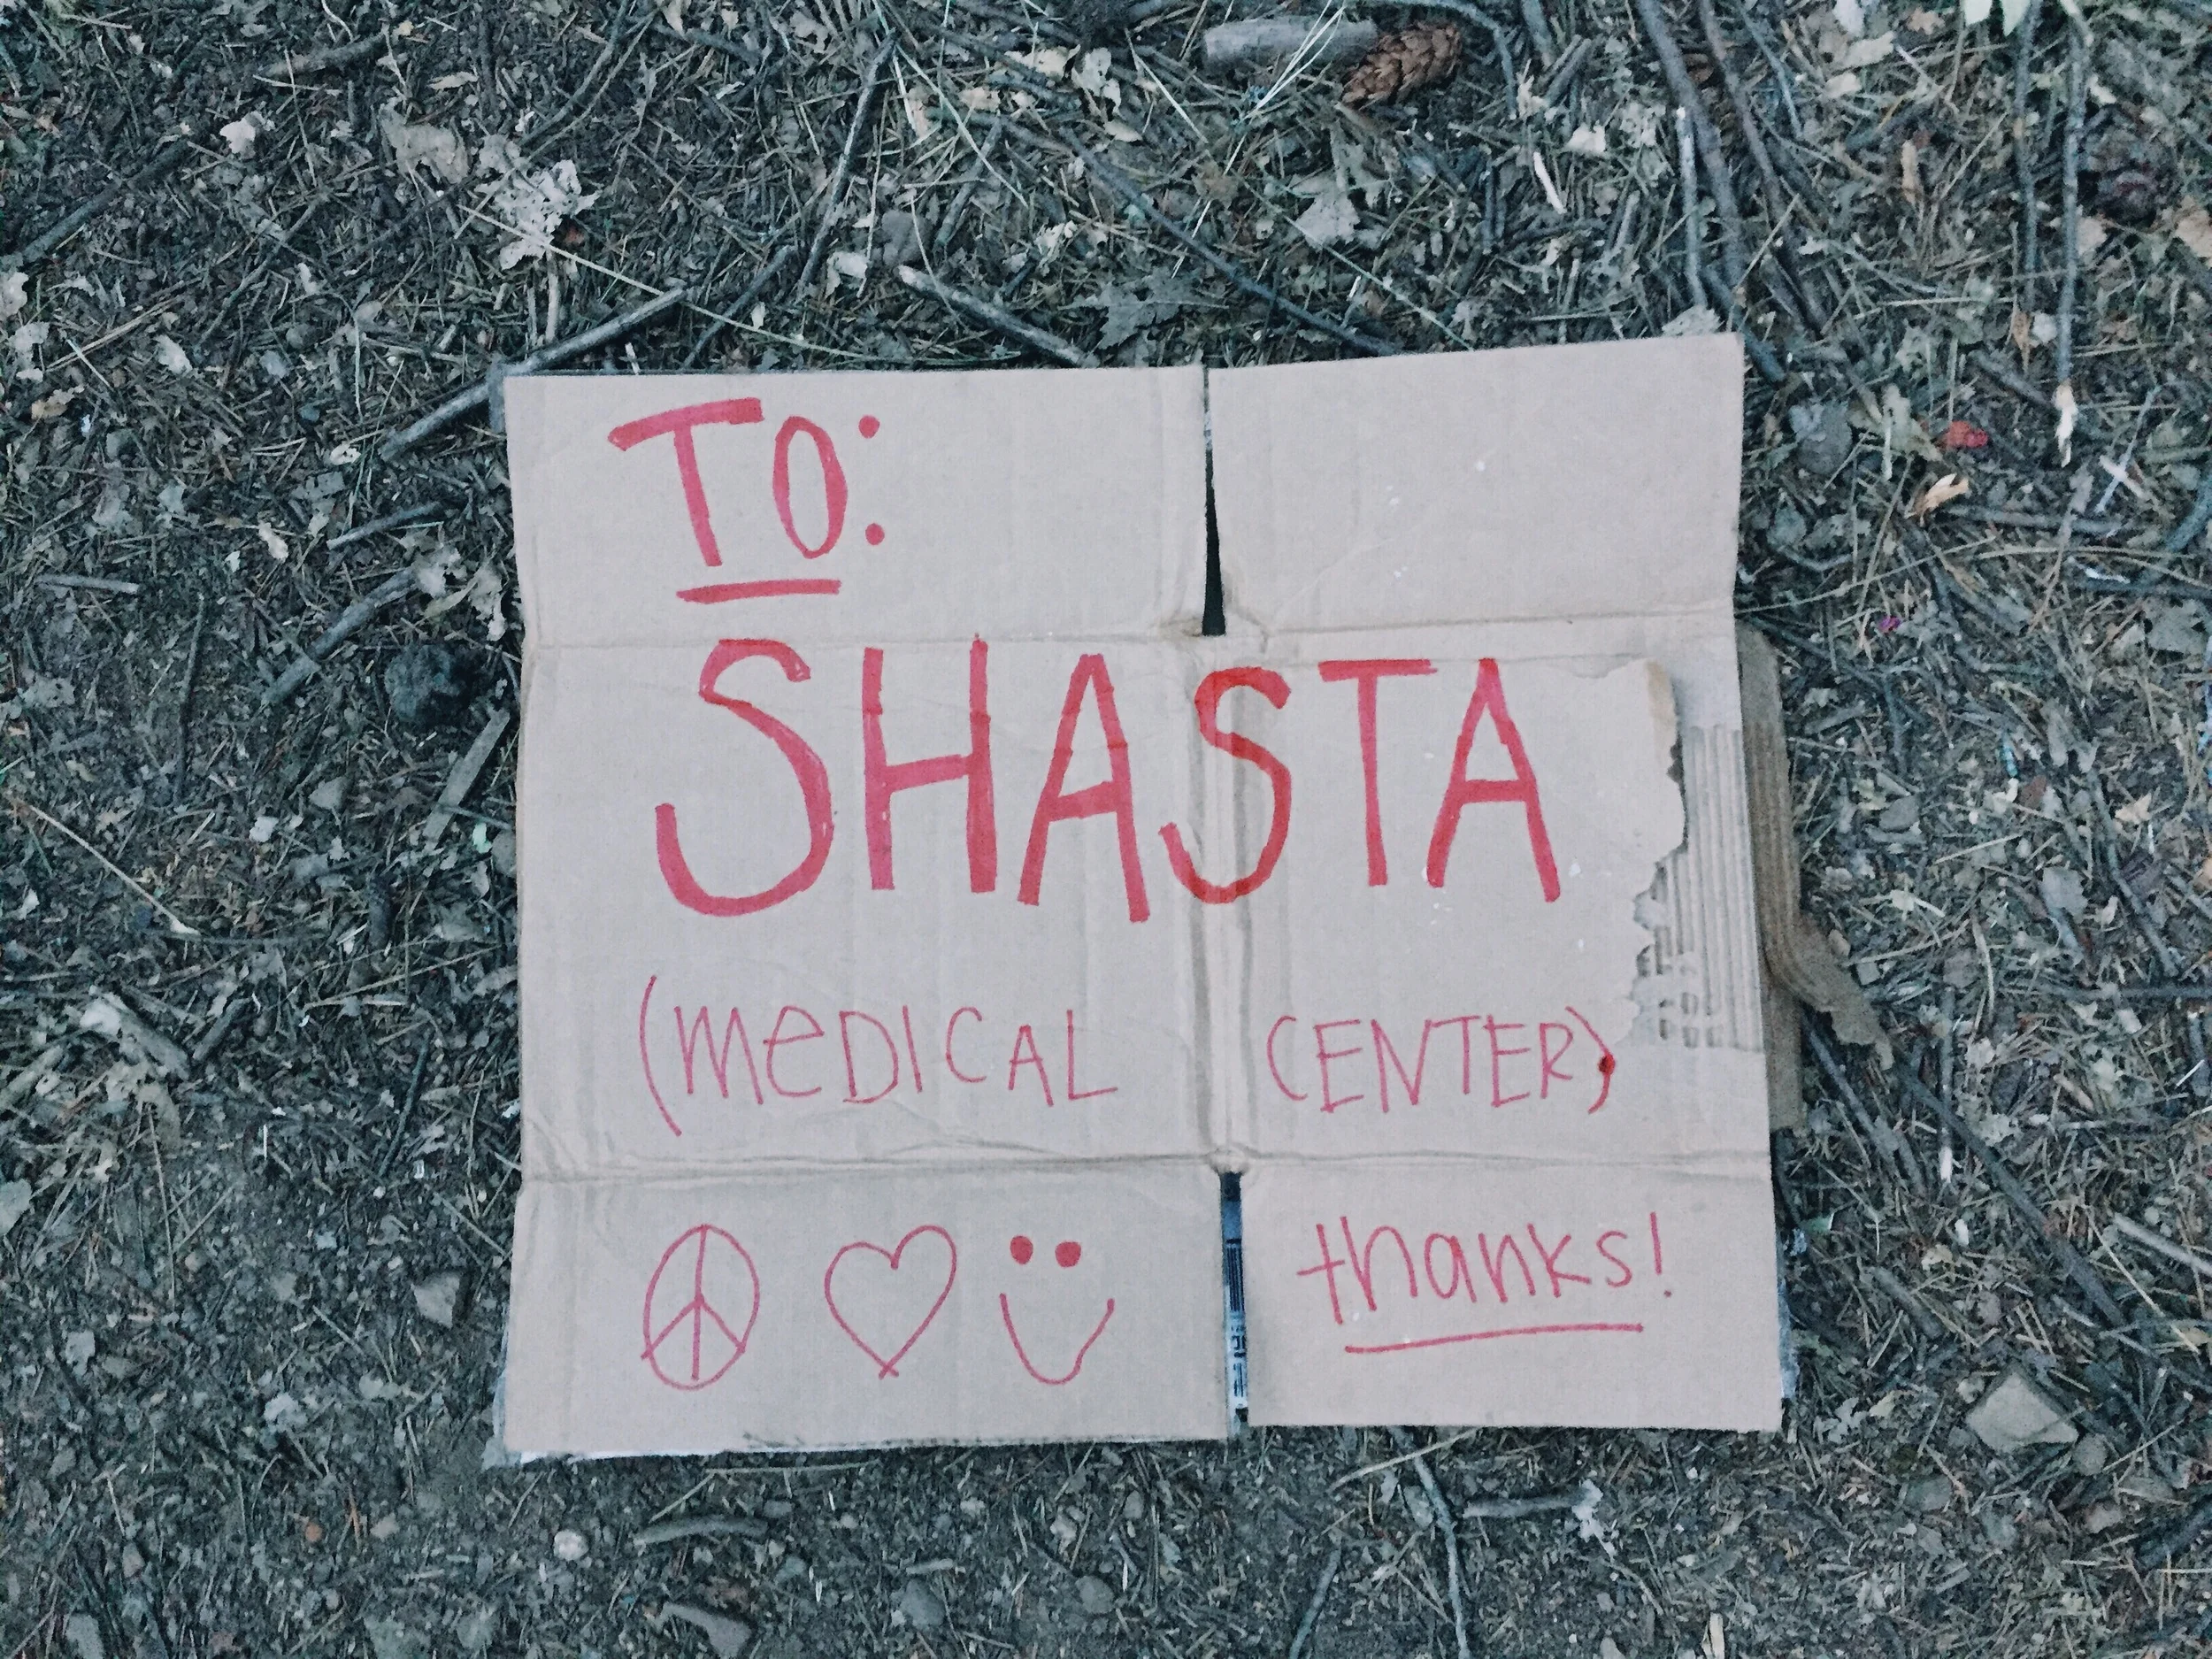 TO:
SHASTA
(MeDICAL CENTER)
thanks!